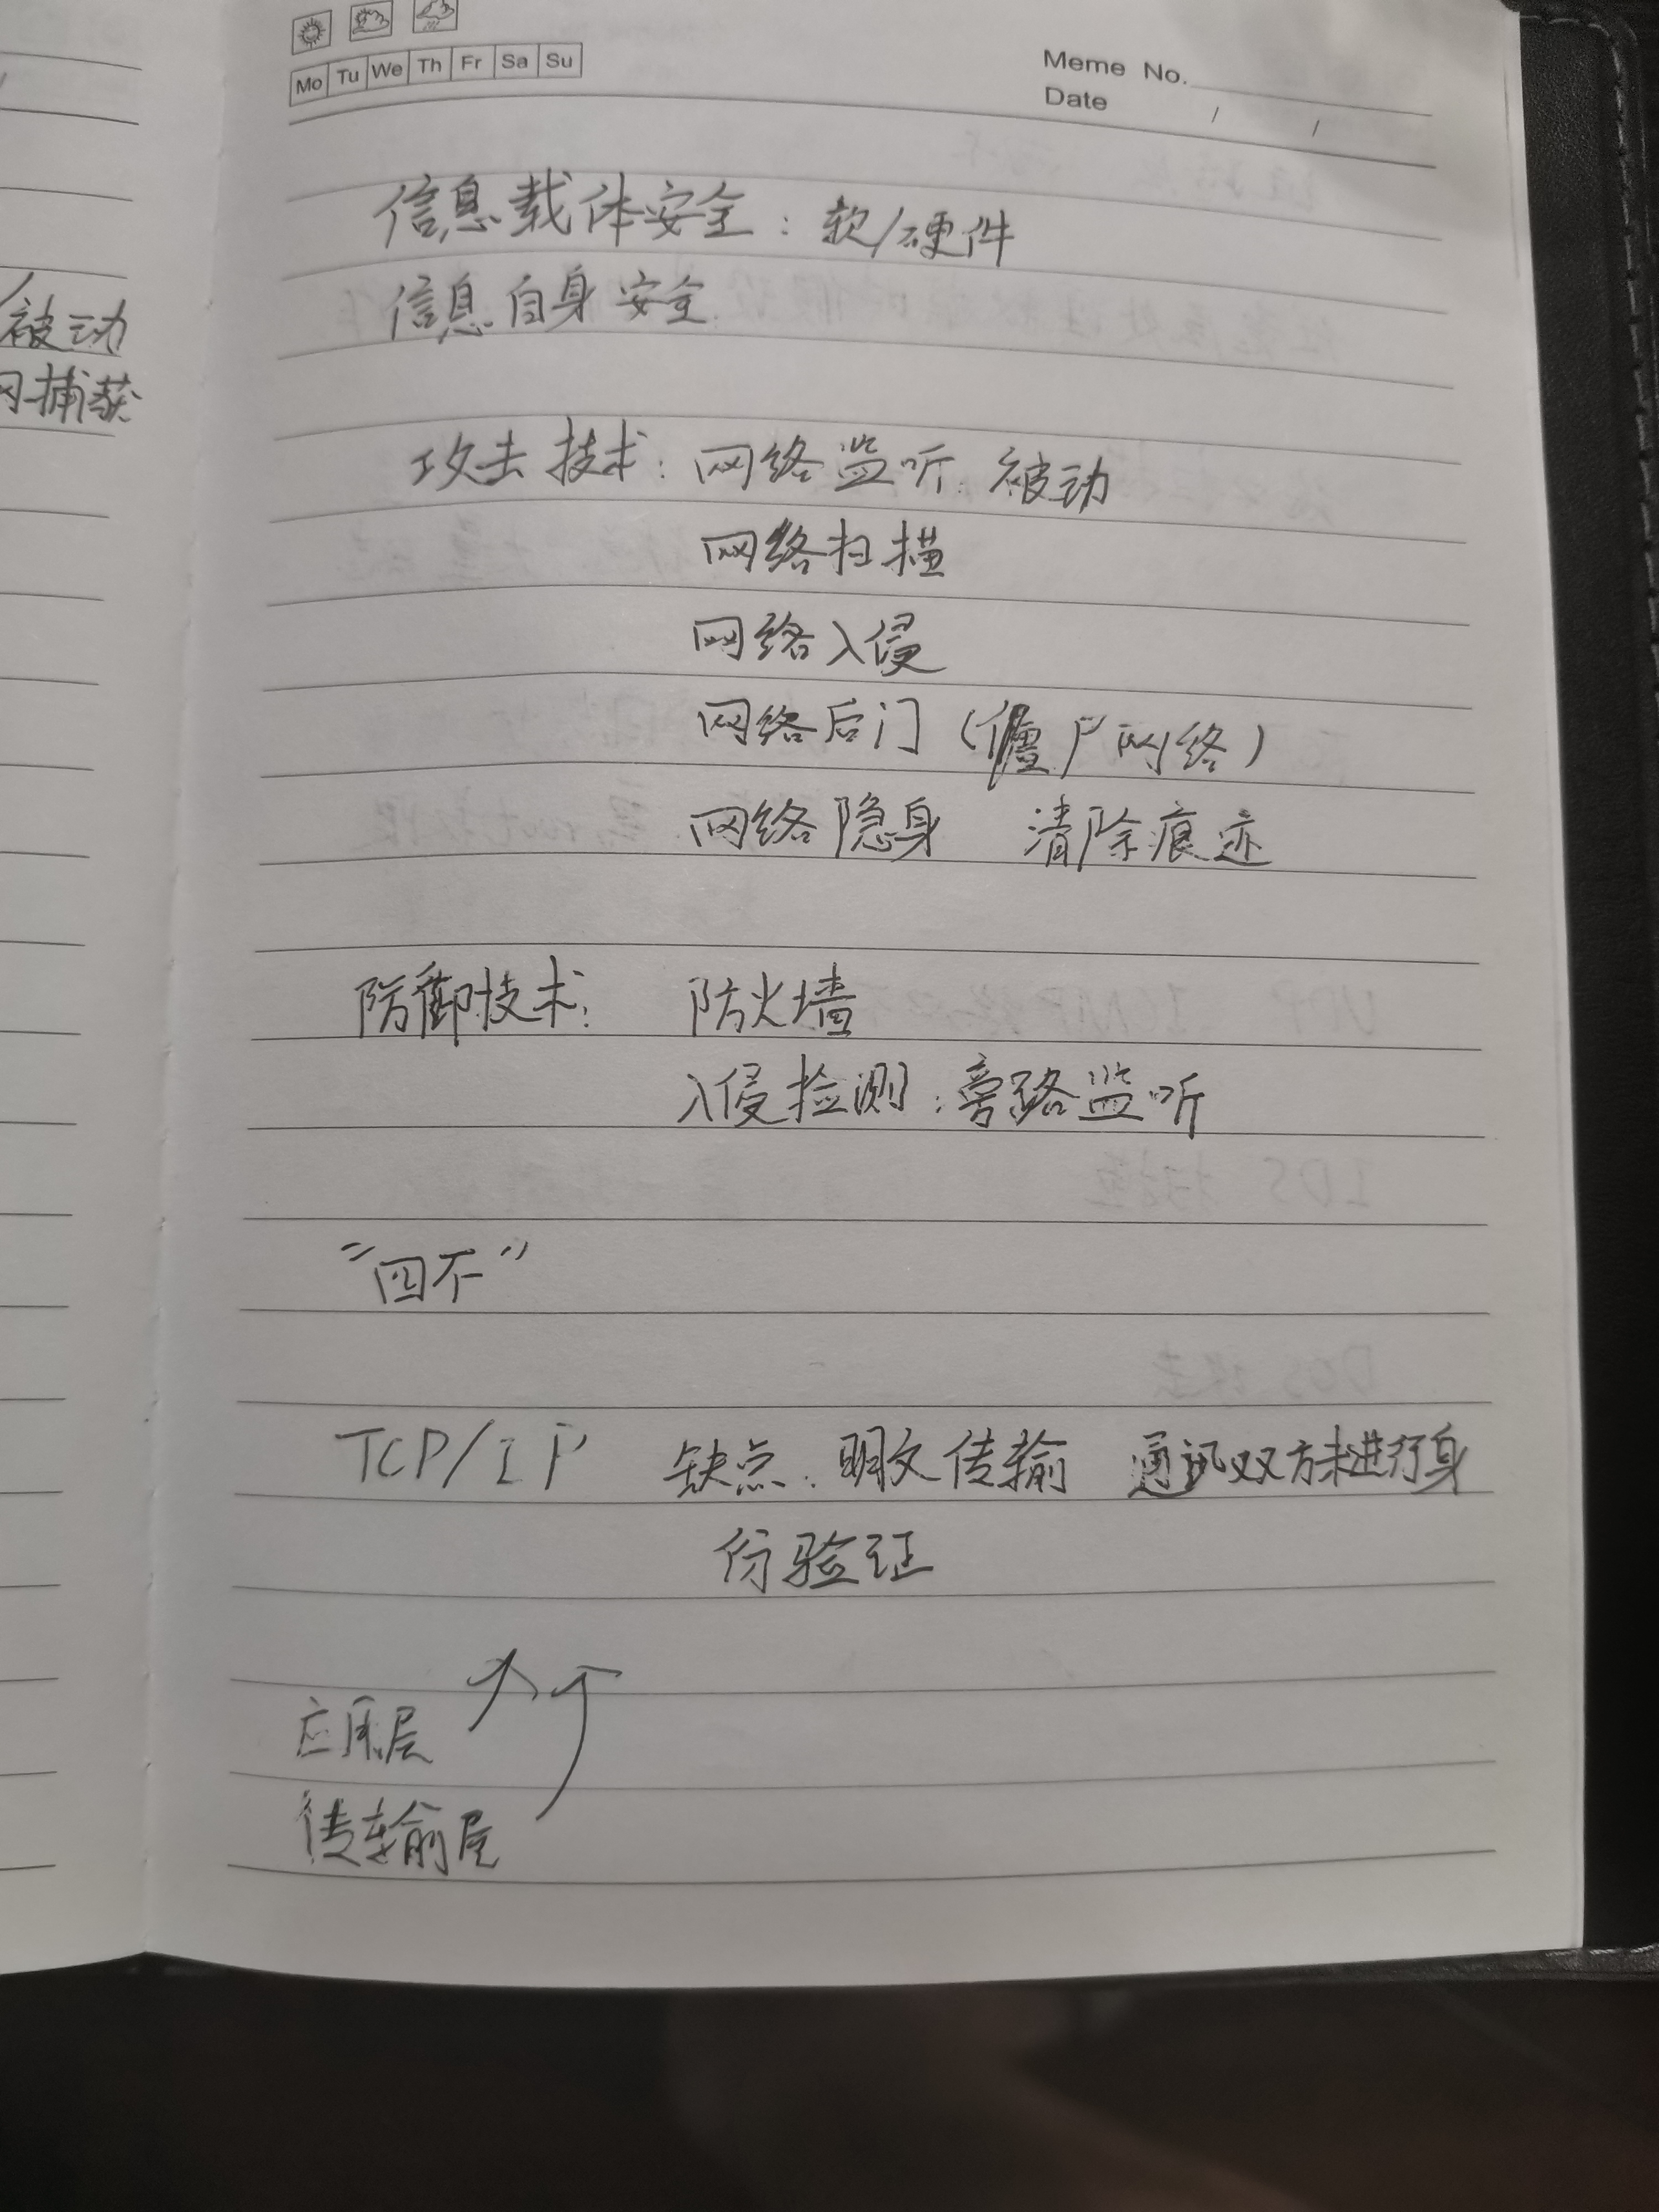 Mo Tu We Th Fr Sa Su
Meme No.
Date / /
被动
捕获
信息载体安全：软/硬件
信息自身安全
攻击技术：网络监听：被动
网络扫描
网络入侵
网络后门（僵尸网络）
网络隐身 清除痕迹
防御技术： 防火墙
入侵检测：旁路监听
“四不”
TCP/IP 缺点：明文传输 通讯双方未进行身
份验证
应用层
传输层